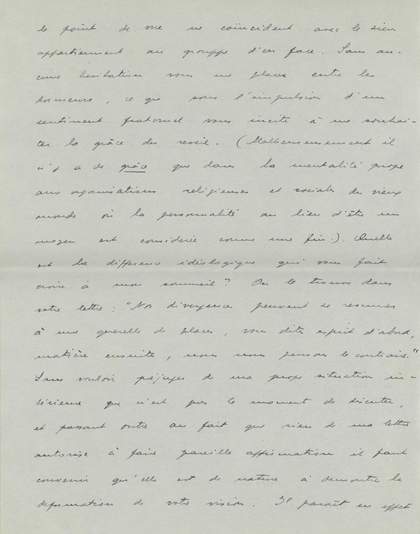 le point de vue ne coïncident avec le sien
appartiennent au grouppe d'en face. Sans au-
cune hésitation vous me placez entre les
dormeurs, ce que sous l'impulsion d'un
sentiment fraternel vous incite à me souhai-
ter la grâce du reveil. (Malheureusement il
n'y a de grâce que dans la mentalité propre
aux organisations religieuses et sociales du vieux
monde où la personnalité au lieu d'être un
moyen est considérée comme une fin). Quelle
est la difference idéologique qui vous fait
croire à mon sommeil? On la trouve dans
votre lettre: "Nos divergences peuvent se resumer
à une querelle de places, vous dites esprit d'abord,
matière ensuite, nous nous pensons le contraire."
Sans vouloir préjuger de ma propre situation in-
térieure que n'est pas le moment de discuter,
et passant outre au fait que rien de ma lettre
autorise à faire pareille affirmation il faut
convenir qu'elle est de nature à demontrer la
deformation de votre vision. Il paraît en effet